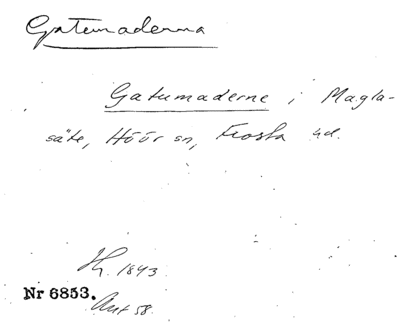 Gatemaderna
Gatumaderne i Magla-
säte, Höör sn, Frosta hd.
Hz. 1843
Nr 6853.
Ant 58.